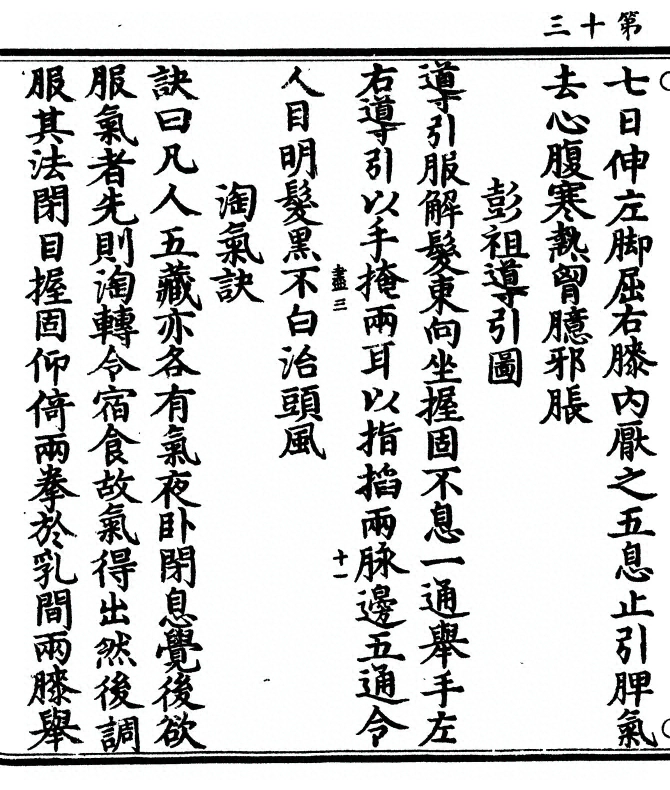 第十三
七日伸左脚屈右膝内厭之五息止引脾氣
去心腹寒熱胷臆邪脹
彭祖導引圖
導引服解髮東向坐握固不息一通舉手左
右導引以手掩兩耳以指掐兩脉邊五通令
盡三
十一
人目明髮黑不白治頭風
淘氣訣
訣曰凡人五藏亦各有氣夜卧閉息覺後欲
服氣者先則淘轉令宿食故氣得出然後調
服其法閉目握固仰倚兩拳於乳間兩膝舉